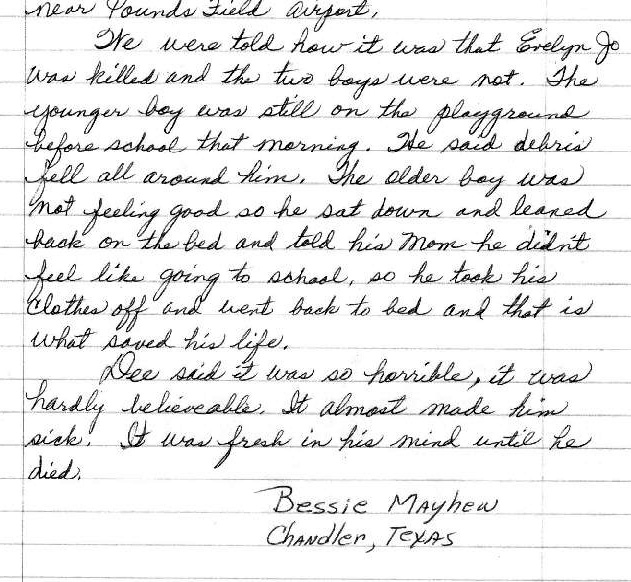 near Pounds Field Airport.
We were told how it was that Evelyn Jo
was killed and the two boys were not. The
younger boy was still on the playground
before school that morning. He said debris
fell all around him. The older boy was
not feeling good so he sat down and leaned
back on the bed and told his Mom he didn't
feel like going to school, so he took his
clothes off and went back to bed and that is
what saved his life.
Dee said it was so horrible, it was
hardly believeable. It almost made him
sick. It was fresh in his mind until he
died.
Bessie Mayhew
Chandler, Texas